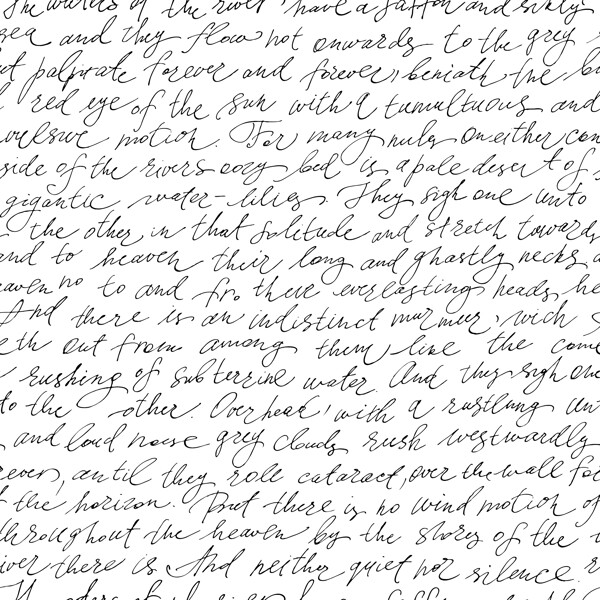 The waters of the river have a saffron and sickly
sea and they flow not onwards to the grey
palpate forever and forever, beneath the
red eye of the sun with a tumultuous and
motion. For many miles on either
side of the rivers oozy bed is a pale desert of
gigantic water-lilies. They sigh one unto
the other in that solitude and stretch towards
and to heaven their long and ghastly necks
no to and fro there everlasting heads
And there is an indistinct murmur, wich
eth out from among them like the
rushing of subterrine water And they sigh one
to the other. Overhead, with a rustlung
and loud noise grey clouds rush westwardly
until they role cataract, over the wall
the horizon. But there is no wind motion of
throughout the heaven by the shores of the
there is And neither quiet nor silence